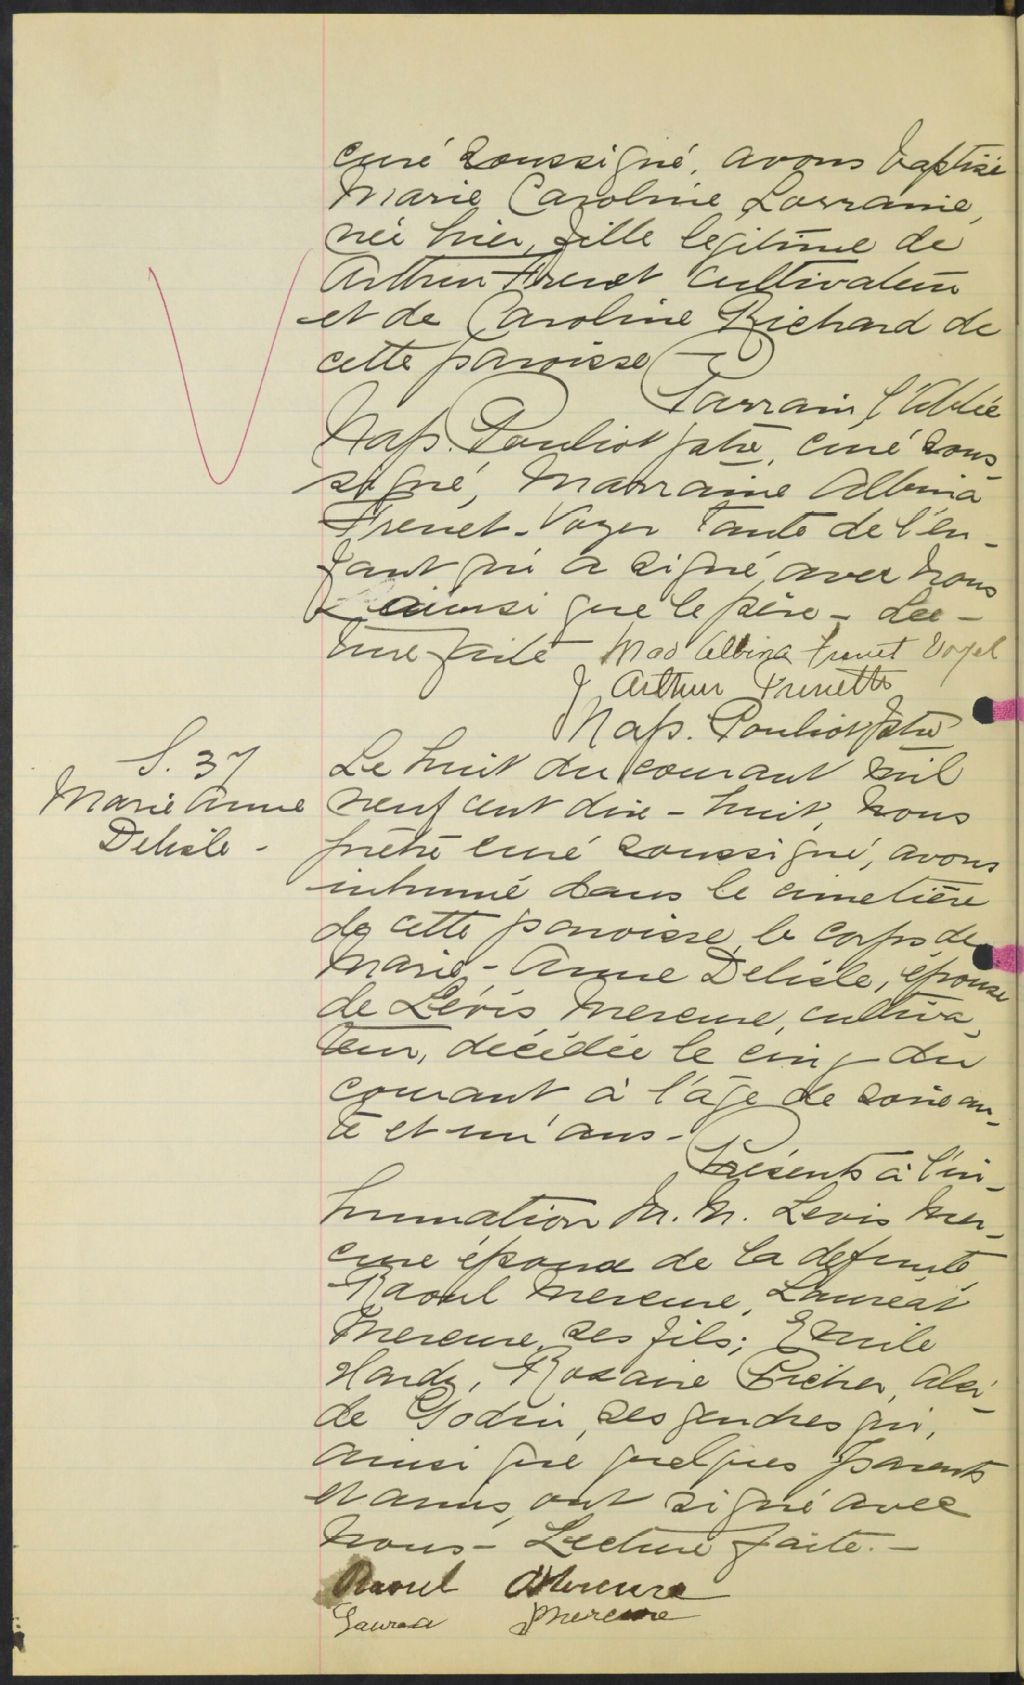 curé soussigné, avons baptisé
Marie Caroline Lorraine,
née hier, fille legitime de
Arthur Frenet cultivateur
et de Caroline Richard de
cette paroisse
Parrain, l'Abbée
Nap. Pouliot ptre, curé sous-
signé, Marraine Albina
Frenet-Voyer tante de l'en-
fant qui a signé avec nous
ainsi que le père - Lec-
ture faite Mad Albina Frenet Voyel
J Arthur Frenette
Nap. Pouliot Ptre
S. 37
Marie Anne
Delisle -
Le huit du courant mil
neuf cent dix-huit, nous
prêtre curé soussigné, avons
inhumé dans le cimetière
de cette paroisse, le corps de
Marie-Anne Delisle, épouse
de Lévis Mercure, cultiva-
teur, décédée le cinq du
courant à l'âge de soixan-
te et un ans -
Présents à l'in-
humation M. M. Levis Mer-
cure époux de la defunte
Raoul Mercure, Lauréat
Mercure, ses fils; Emile
Hardy, Rosaire Picher, Alci-
de Godin, ses gendres qui,
ainsi que quelques parents
et amis, ont signé avec
nous - Lecture faite. -
Raoul Mercure
Laurea Mercure